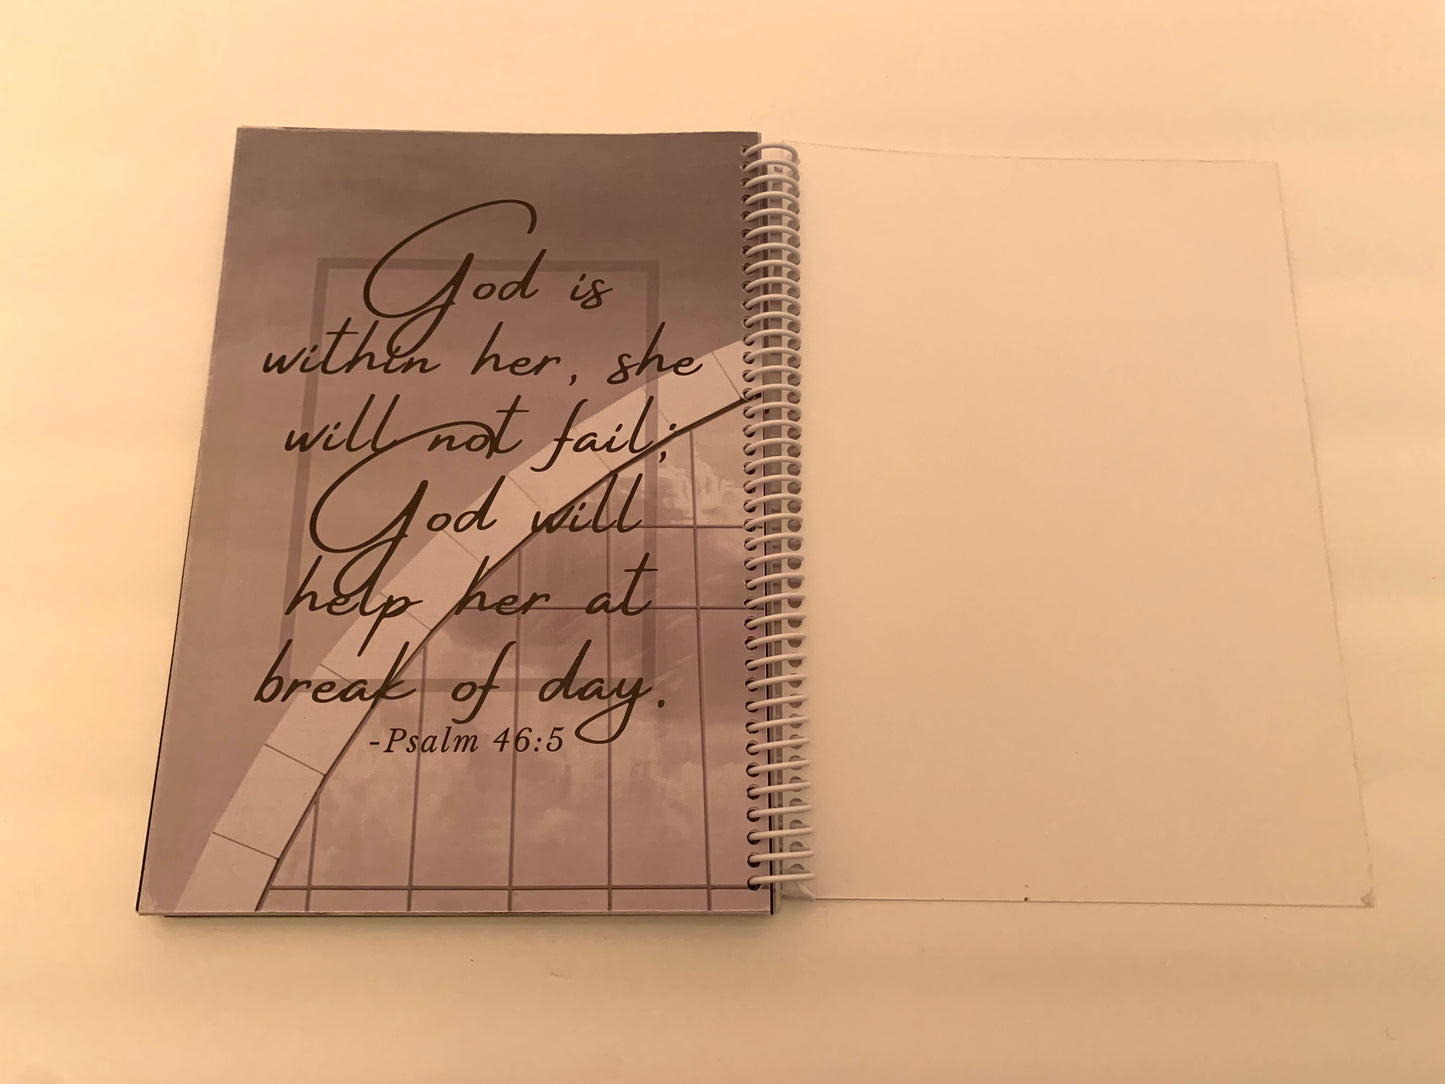 God is
within her, she
will not fail;
God will
help her at
break of day.
-Psalm 46:5